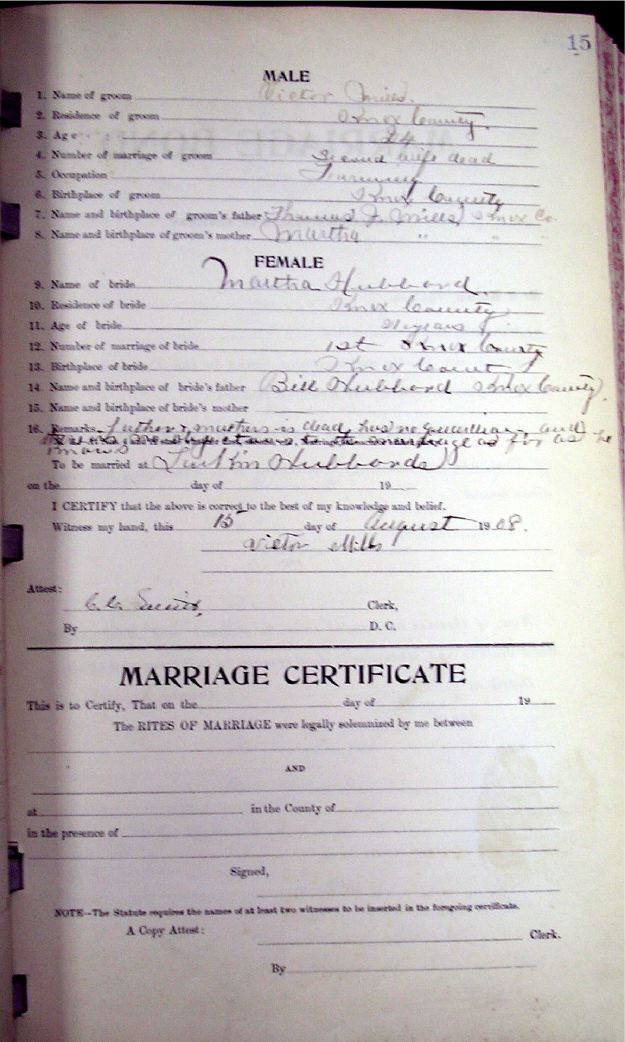 15
MALE
1. Name of groom Victor Mills.
2. Residence of groom Knox County.
3. Age 24
4. Number of marriage of groom Second wife dead
5. Occupation Farming
6. Birthplace of groom Knox County
7. Name and birthplace of groom's father Thomas J. Mills, Knox Co.
8. Name and birthplace of groom's mother Martha " "
FEMALE
9. Name of bride Martha Hubbard.
10. Residence of bride Knox County
11. Age of bride 21 years
12. Number of marriage of bride 1st Knox County
13. Birthplace of bride Knox County
14. Name and birthplace of bride's father Bill Hubbard Knox County.
15. Name and birthplace of bride's mother
16. Remarks Father & mother is dead, has no guardian, and
as far as he
knows
To be married at Hubbards
on the day of 19
I CERTIFY that the above is correct to the best of my knowledge and belief.
Witness my hand, this 15 day of August 1908.
Victor Mills
Attest:
Clerk,
By D. C.
MARRIAGE CERTIFICATE
This is to Certify, That on the day of 19
The RITES OF MARRIAGE were legally solemnized by me between
AND
at in the County of
in the presence of
Signed,
NOTE--The Statute requires the names of at least two witnesses to be inserted in the foregoing certificate.
A Copy Attest: Clerk.
By